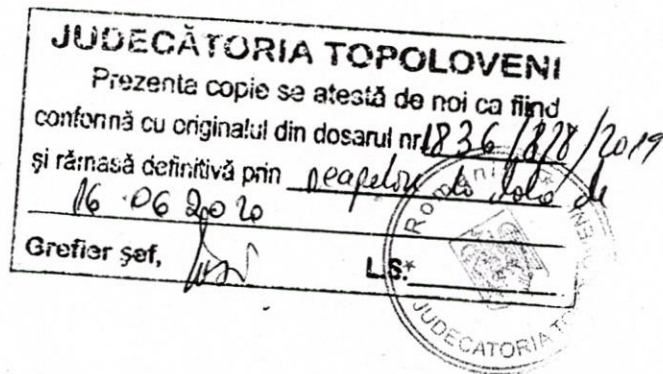 JUDECĂTORIA TOPOLOVENI
Prezenta copie se atestă de noi ca fiind
conformă cu originalul din dosarul nr. 1836/828/2019
și rămasă definitivă prin neapelare la data de
16 06 2020
Grefier șef,
L.S.
România
JUDECATORIA TO ENI